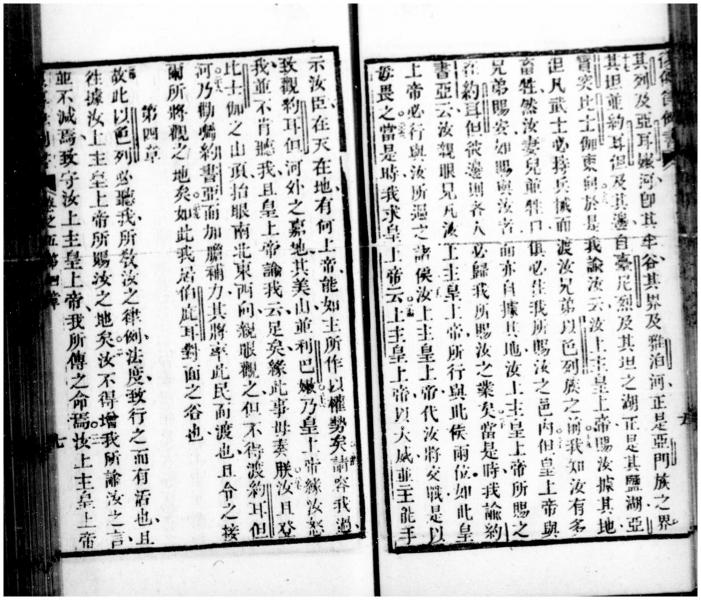 復傳律例書
其列及亞耳嫩河卽其半谷其界及雅泊河正是亞門族之界
其坦並約耳但及其邊自基尼烈及其坦之湖正是其鹽湖亞
實突比士伽東向於是我諭汝云汝上主皇上帝賜汝據其地
但凡武士必持兵械而渡汝兄弟以色列族之前我知汝有多
畜牲然汝妻兒並牲口俱必住我所賜汝之邑內但皇上帝與
兄弟賜安如賜與汝者而亦自據其地汝上主皇上帝所賜之
在約耳但彼邊廻各人必歸我所賜汝之業矣當是時我諭約
書亞云汝親眼見凡汝上主皇上帝所行與此侯兩位如此皇
上帝必行與汝所過之諸侯汝上主皇上帝代汝將交戰是以
毋畏之當是時我求皇上帝云上主皇上帝以大威並王能手
示汝臣在天在地有何上帝能如主所作以權勢矣請容我過
致觀約耳但河外之嘉地其美山並利巴嫩乃皇上帝緣汝怒
我並不肯聽我且皇上帝諭我云足矣緣此事毋奏朕汝且登
比士伽之山頂抬眼南北東西向親眼觀之但不得渡約耳但
河乃勸勵約書亞而加膽補力其將率此民而渡也且令之接
爾所將觀之地矣如此我居伯庇耳對面之谷也
第四章
故此以色列必聽我所敎汝之律例法度致行之而有活也且
往據汝上主皇上帝所賜汝之地矣汝不得增我所諭汝之言
並不減焉致守汝上主皇上帝我所傳之命焉汝上主皇上帝
卷之五第四章
七